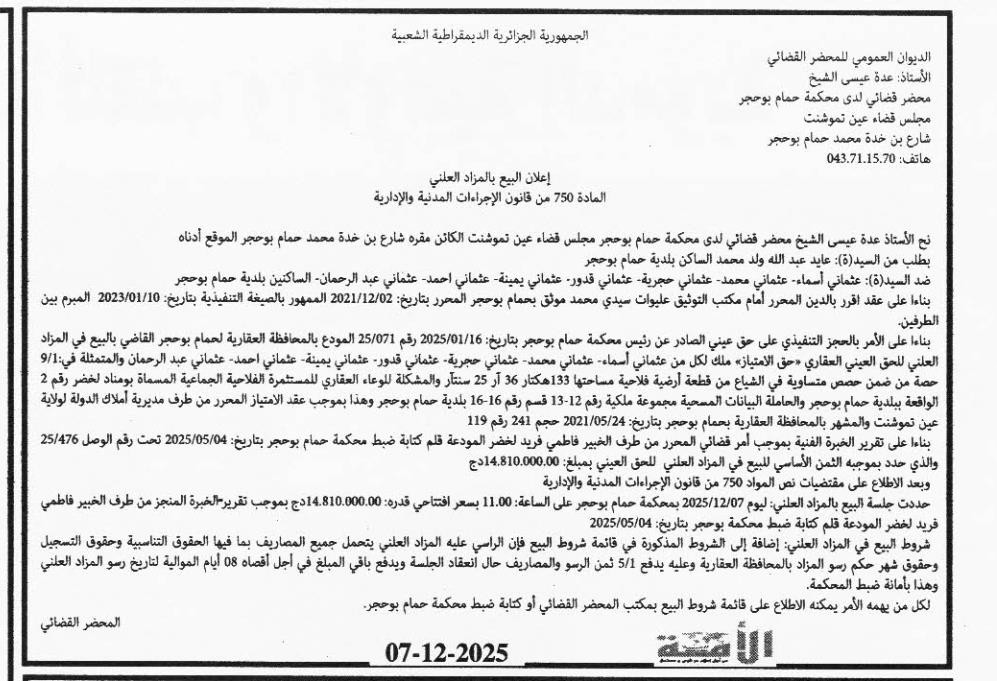 الجمهورية الجزائرية الديمقراطية الشعبية
الديوان العمومي للمحضر القضائي
الأستاذ: عدة عيسى الشيخ
محضر قضائي لدى محكمة حمام بوحجر
مجلس قضاء عين تموشنت
شارع بن خدة محمد حمام بوحجر
هاتف: 043.71.15.70
إعلان البيع بالمزاد العلني
المادة 750 من قانون الإجراءات المدنية والإدارية
نح الأستاذ عدة عيسى الشيخ محضر قضائي لدى محكمة حمام بوحجر مجلس قضاء عين تموشنت الكائن مقره شارع بن خدة محمد حمام بوحجر الموقع أدناه
بطلب من السيد(ة): عايد عبد الله ولد محمد الساكن بلدية حمام بوحجر
ضد السيد(ة): عثماني أسماء- عثماني محمد- عثماني حجرية- عثماني قدور- عثماني يمينة- عثماني احمد- عثماني عبد الرحمان- الساكنين بلدية حمام بوحجر
بناءا على عقد اقرر بالدين المحرر أمام مكتب التوثيق عليوات سيدي محمد موثق بحمام بوحجر المحرر بتاريخ: 2021/12/02 الممهور بالصيغة التنفيذية بتاريخ: 2023/01/10 المبرم بين
الطرفين.
بناءا على الأمر بالحجز التنفيذي على حق عيني الصادر عن رئيس محكمة حمام بوحجر بتاريخ: 2025/01/16 رقم 25/071 المودع بالمحافظة العقارية لحمام بوحجر القاضي بالبيع في المزاد
العلني للحق العيني العقاري «حق الامتياز» ملك لكل من عثماني أسماء- عثماني محمد- عثماني حجرية- عثماني قدور- عثماني يمينة- عثماني احمد- عثماني عبد الرحمان والمتمثلة في: 9/1
حصة من ضمن حصص متساوية في الشياع من قطعة أرضية فلاحية مساحتها 133هكتار 36 آر 25 سنتآر والمشكلة للوعاء العقاري للمستثمرة الفلاحية الجماعية المسماة بومناد لخضر رقم 2
الواقعة ببلدية حمام بوحجر والحاملة البيانات المسحية مجموعة ملكية رقم 12-13 قسم رقم 16-16 بلدية حمام بوحجر وهذا بموجب عقد الامتياز المحرر من طرف مديرية أملاك الدولة لولاية
عين تموشنت والمشهر بالمحافظة العقارية بحمام بوحجر بتاريخ: 2021/05/24 حجم 241 رقم 119
بناءا على تقرير الخبرة الفنية بموجب أمر قضائي المحرر من طرف الخبير فاطمي فريد لخضر المودعة قلم كتابة ضبط محكمة حمام بوحجر بتاريخ: 2025/05/04 تحت رقم الوصل 25/476
والذي حدد بموجبه الثمن الأساسي للبيع في المزاد العلني للحق العيني بمبلغ: 14.810.000.00دج
وبعد الاطلاع على مقتضيات نص المواد 750 من قانون الإجراءات المدنية والإدارية
حددت جلسة البيع بالمزاد العلني: ليوم 2025/12/07 بمحكمة حمام بوحجر على الساعة: 11.00 بسعر افتتاحي قدره: 14.810.000.00دج بموجب تقرير الخبرة المنجز من طرف الخبير فاطمي
فريد لخضر المودعة قلم كتابة ضبط محكمة بوحجر بتاريخ: 2025/05/04
شروط البيع في المزاد العلني: إضافة إلى الشروط المذكورة في قائمة شروط البيع فإن الراسي عليه المزاد العلني يتحمل جميع المصاريف بما فيها الحقوق التناسبية وحقوق التسجيل
وحقوق شهر حكم رسو المزاد بالمحافظة العقارية وعليه يدفع 5/1 ثمن الرسو والمصاريف حال انعقاد الجلسة ويدفع باقي المبلغ في أجل أقصاه 08 أيام الموالية لتاريخ رسو المزاد العلني
وهذا بأمانة ضبط المحكمة.
لكل من يهمه الأمر يمكنه الاطلاع على قائمة شروط البيع بمكتب المحضر القضائي أو كتابة ضبط محكمة حمام بوحجر.
المحضر القضائي
الأمة
07-12-2025